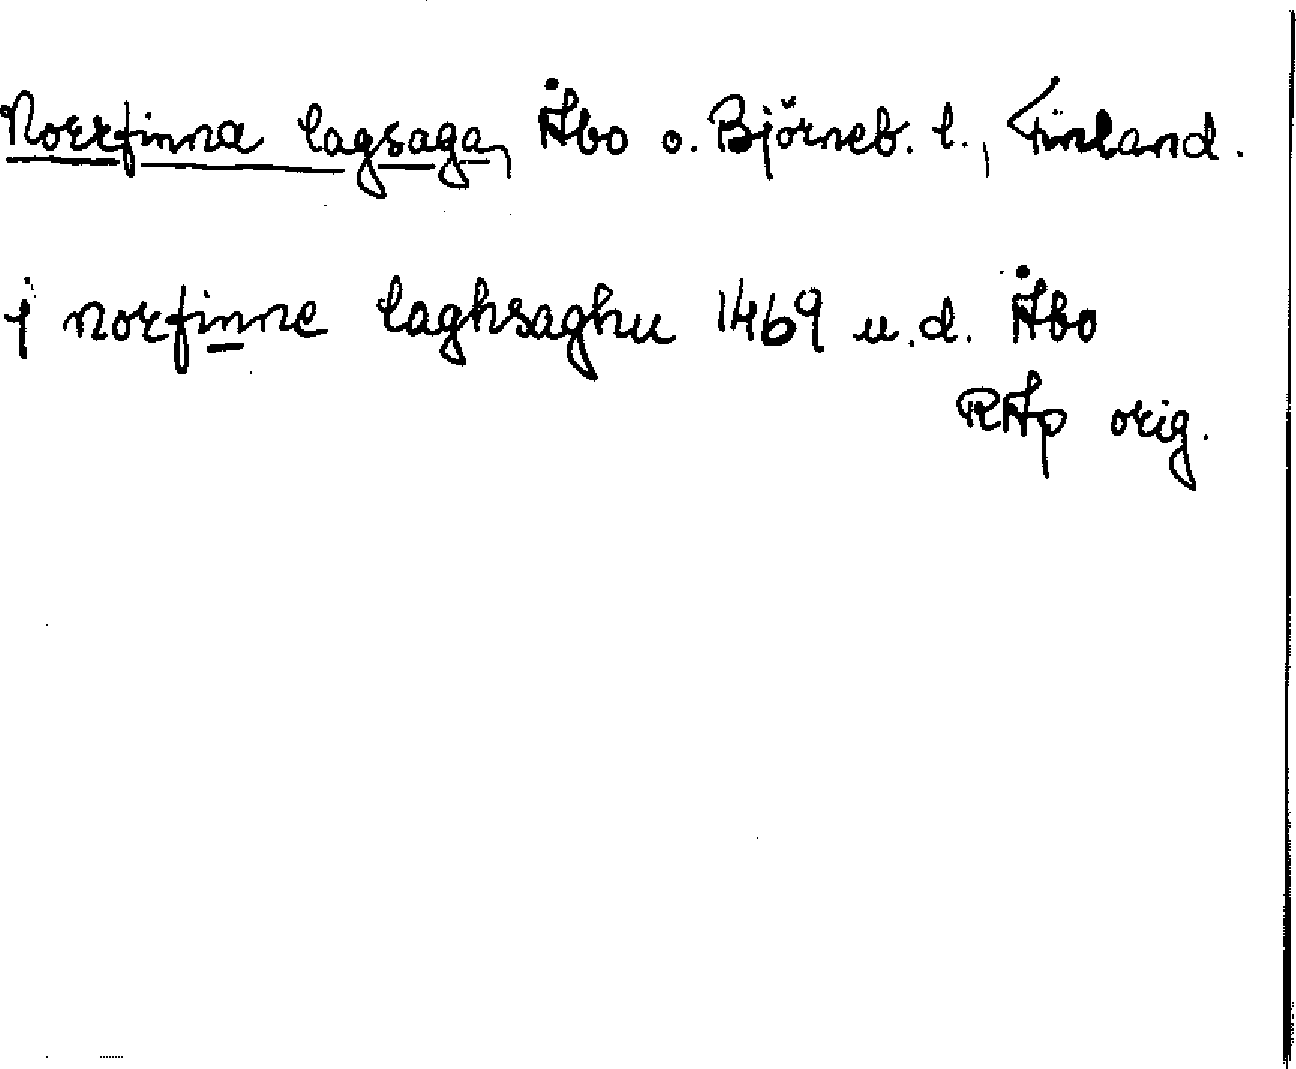 Norrfinna lagsaga, Åbo o. Björneb. l., Finland.
j norfinne laghsaghu 1469 u.d. Åbo
RAp orig.